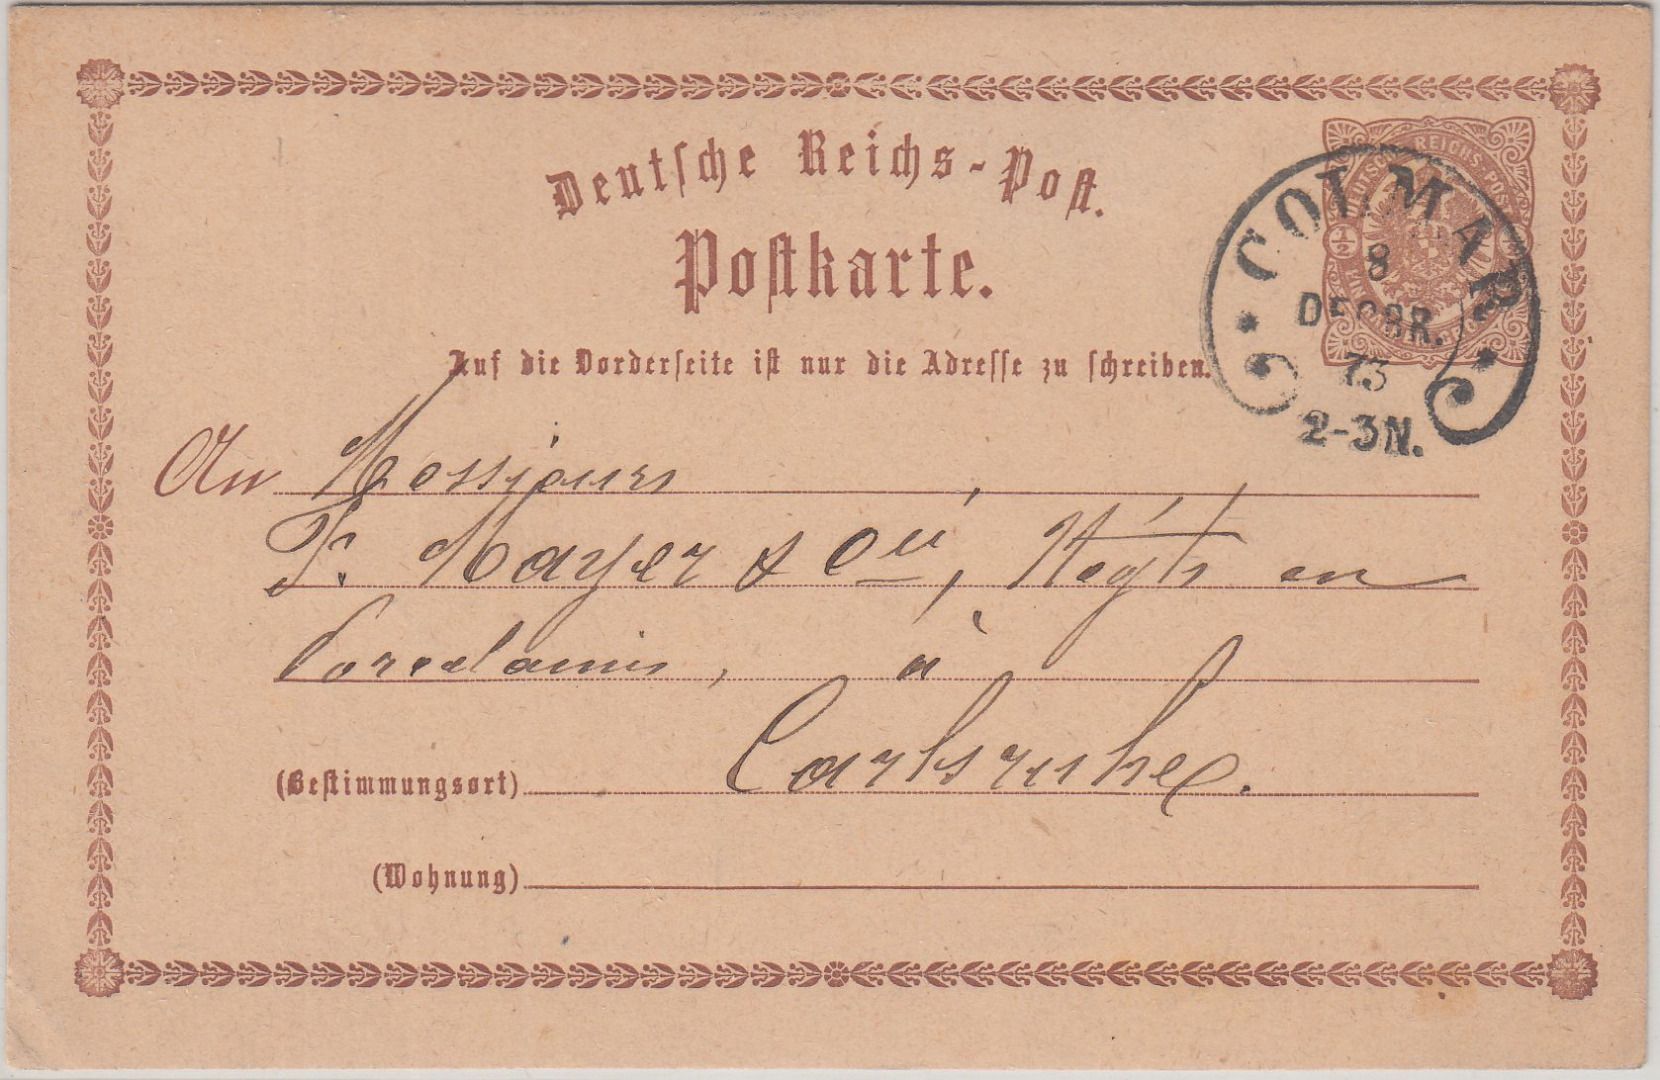 Deutsche Reichs-Post.
Postkarte.
Auf die Vorderseite ist nur die Adresse zu schreiben.
DEUTSCHE REICHS-POST
1/2
COLMAR
8
DECBR.
73
2-3N.
An Messieurs
F. Mayer & Cie, Négts en
Porcelaines, à
(Bestimmungsort) Carlsruhe.
(Wohnung)